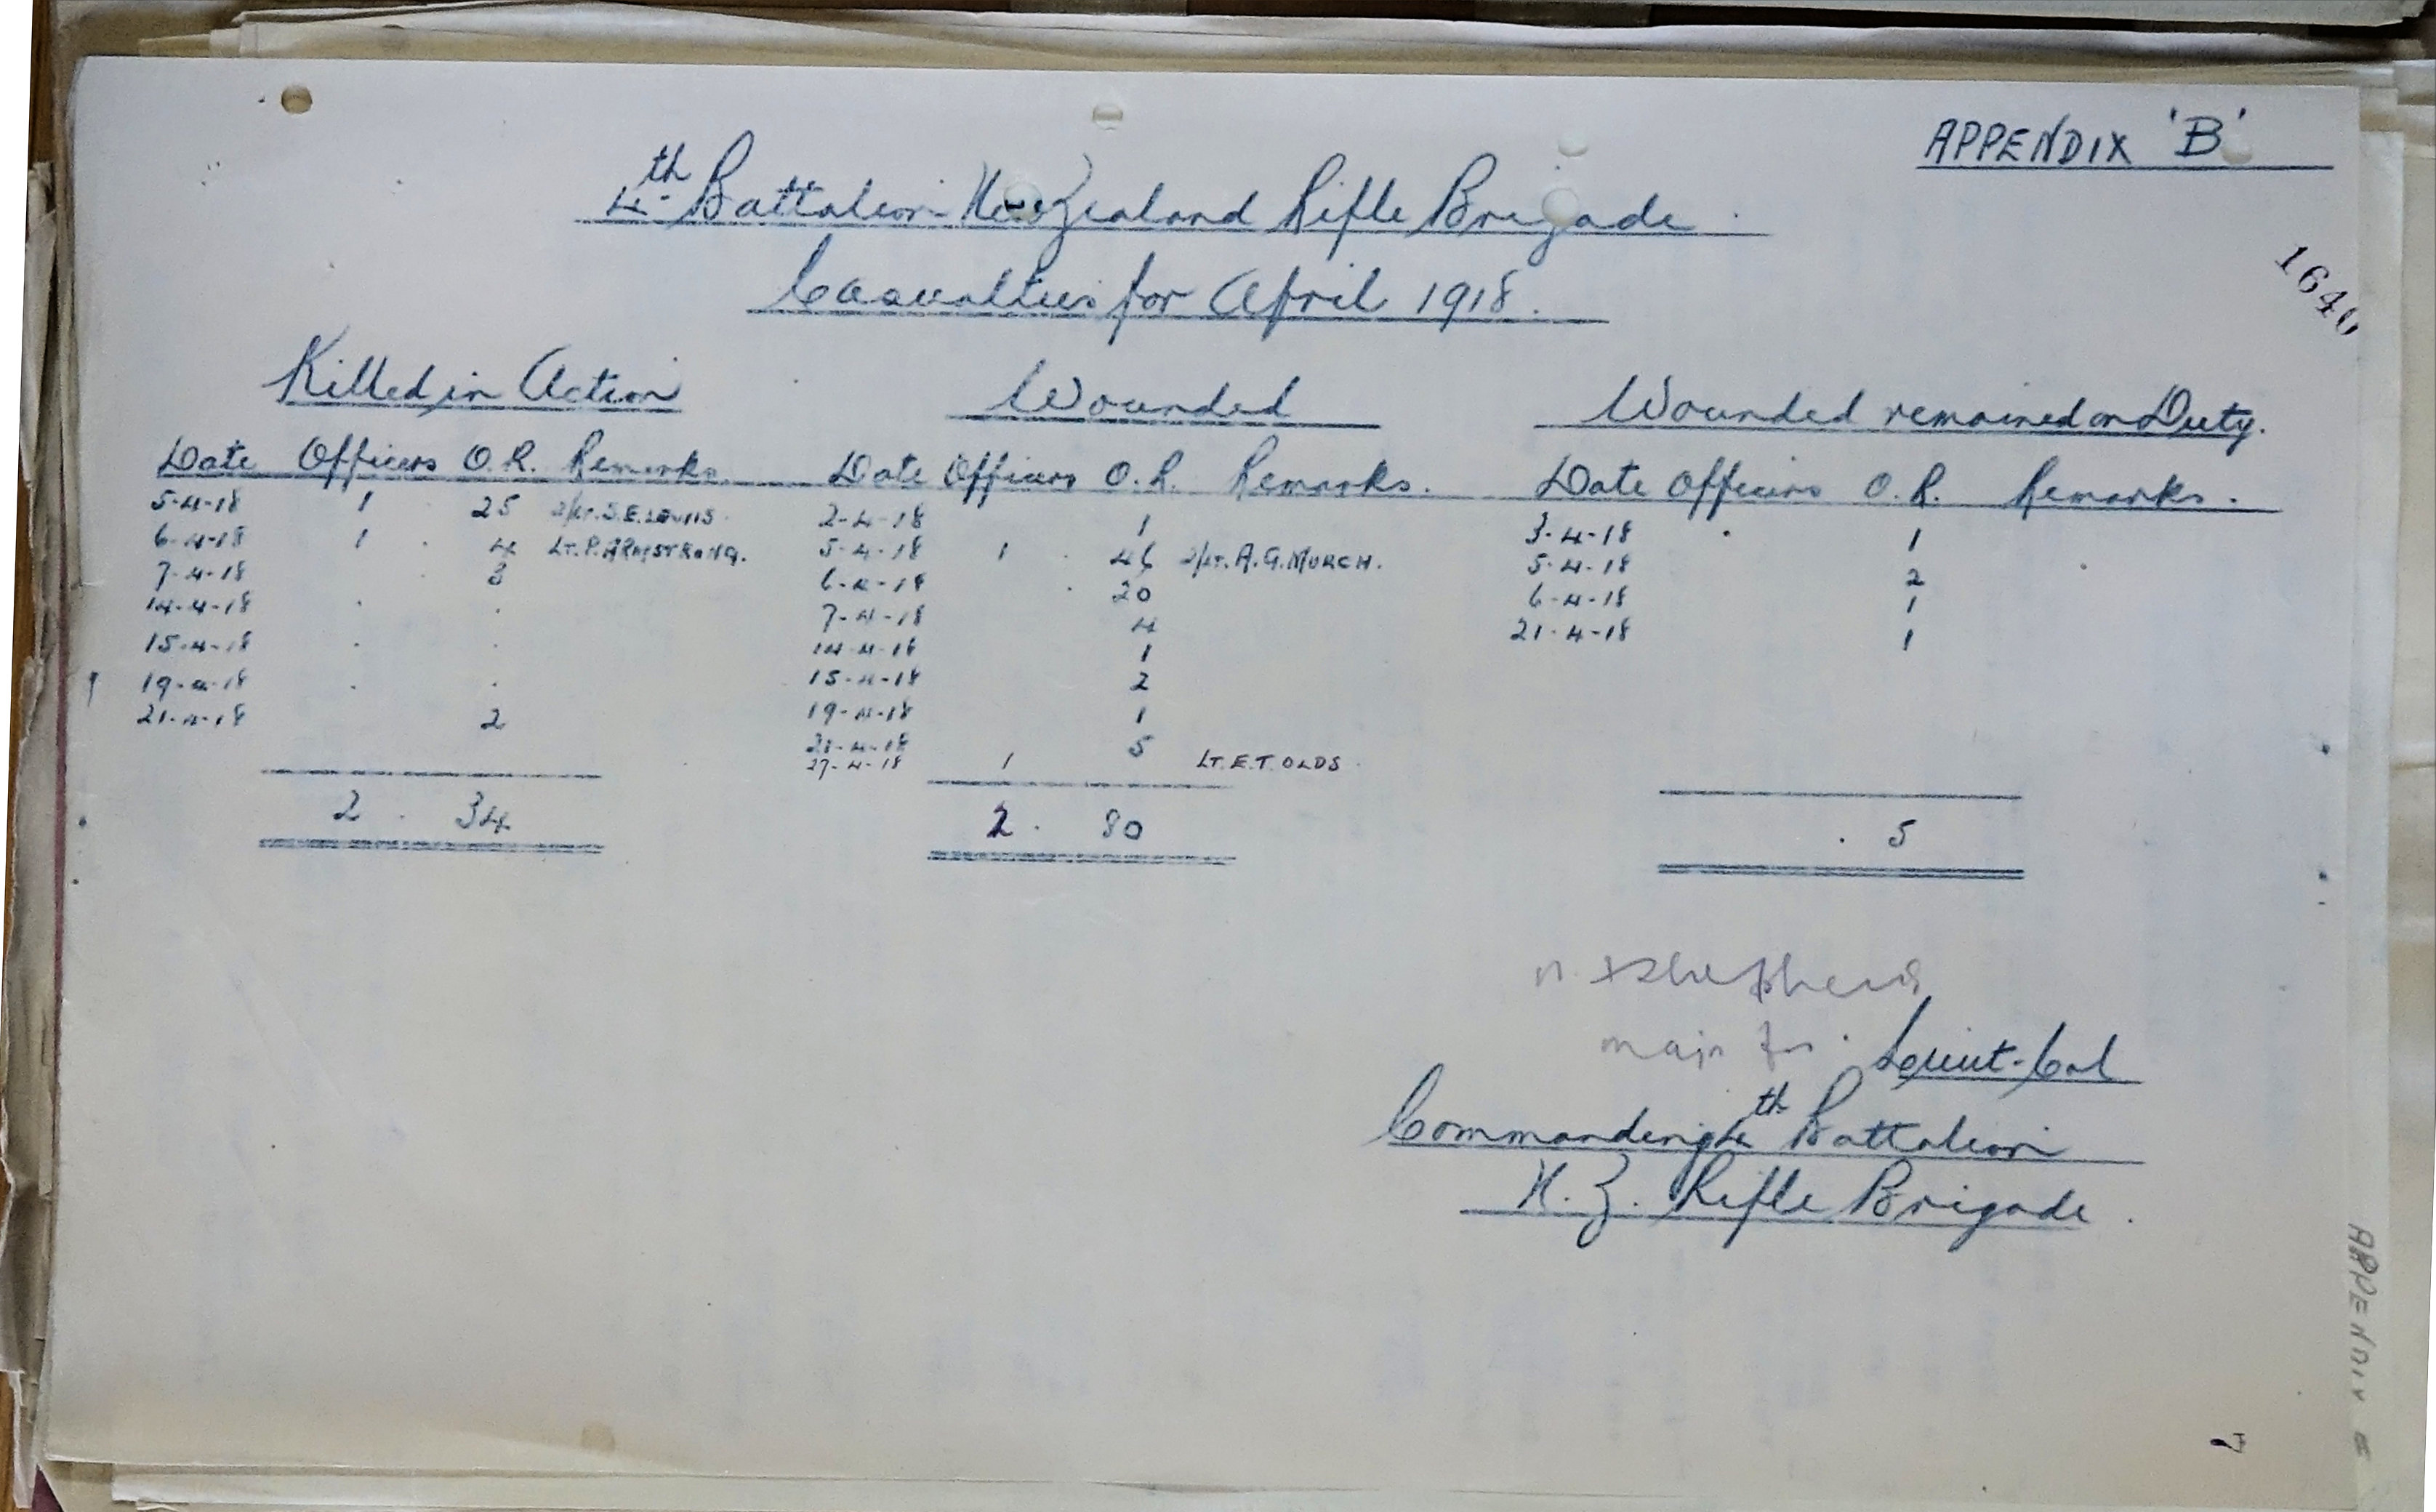 APPENDIX 'B'
4th Battalion New Zealand Rifle Brigade.
Casualties for April 1918.
1640
Killed in Action
Date Officers O.R. Remarks.
5-4-18 1 25 2/Lt. S.E. LEWIS.
6-4-18 1 . 4 LT. P. ARMSTRONG.
7-4-18 . 3
14-4-18 . .
15-4-18 . .
19-4-18 . .
21-4-18 2
2 . 34
Wounded
Date Officers O.R. Remarks.
2-4-18 1
5-4-18 1 . 46 2/Lt. A.G. MURCH.
6-4-18 . 20
7-4-18 4
14-4-18 1
15-4-18 2
19-4-18 1
21-4-18 5
27-4-18 1 LT. E.T. OLDS.
2 . 80
Wounded remained on Duty.
Date Officers O.R. Remarks.
3-4-18 . 1
5-4-18 2
6-4-18 1
21-4-18 1
. 5
Shepherd
major for Lieut-Col
Commanding 4th Battalion
N.Z. Rifle Brigade.
APPENDIX
7